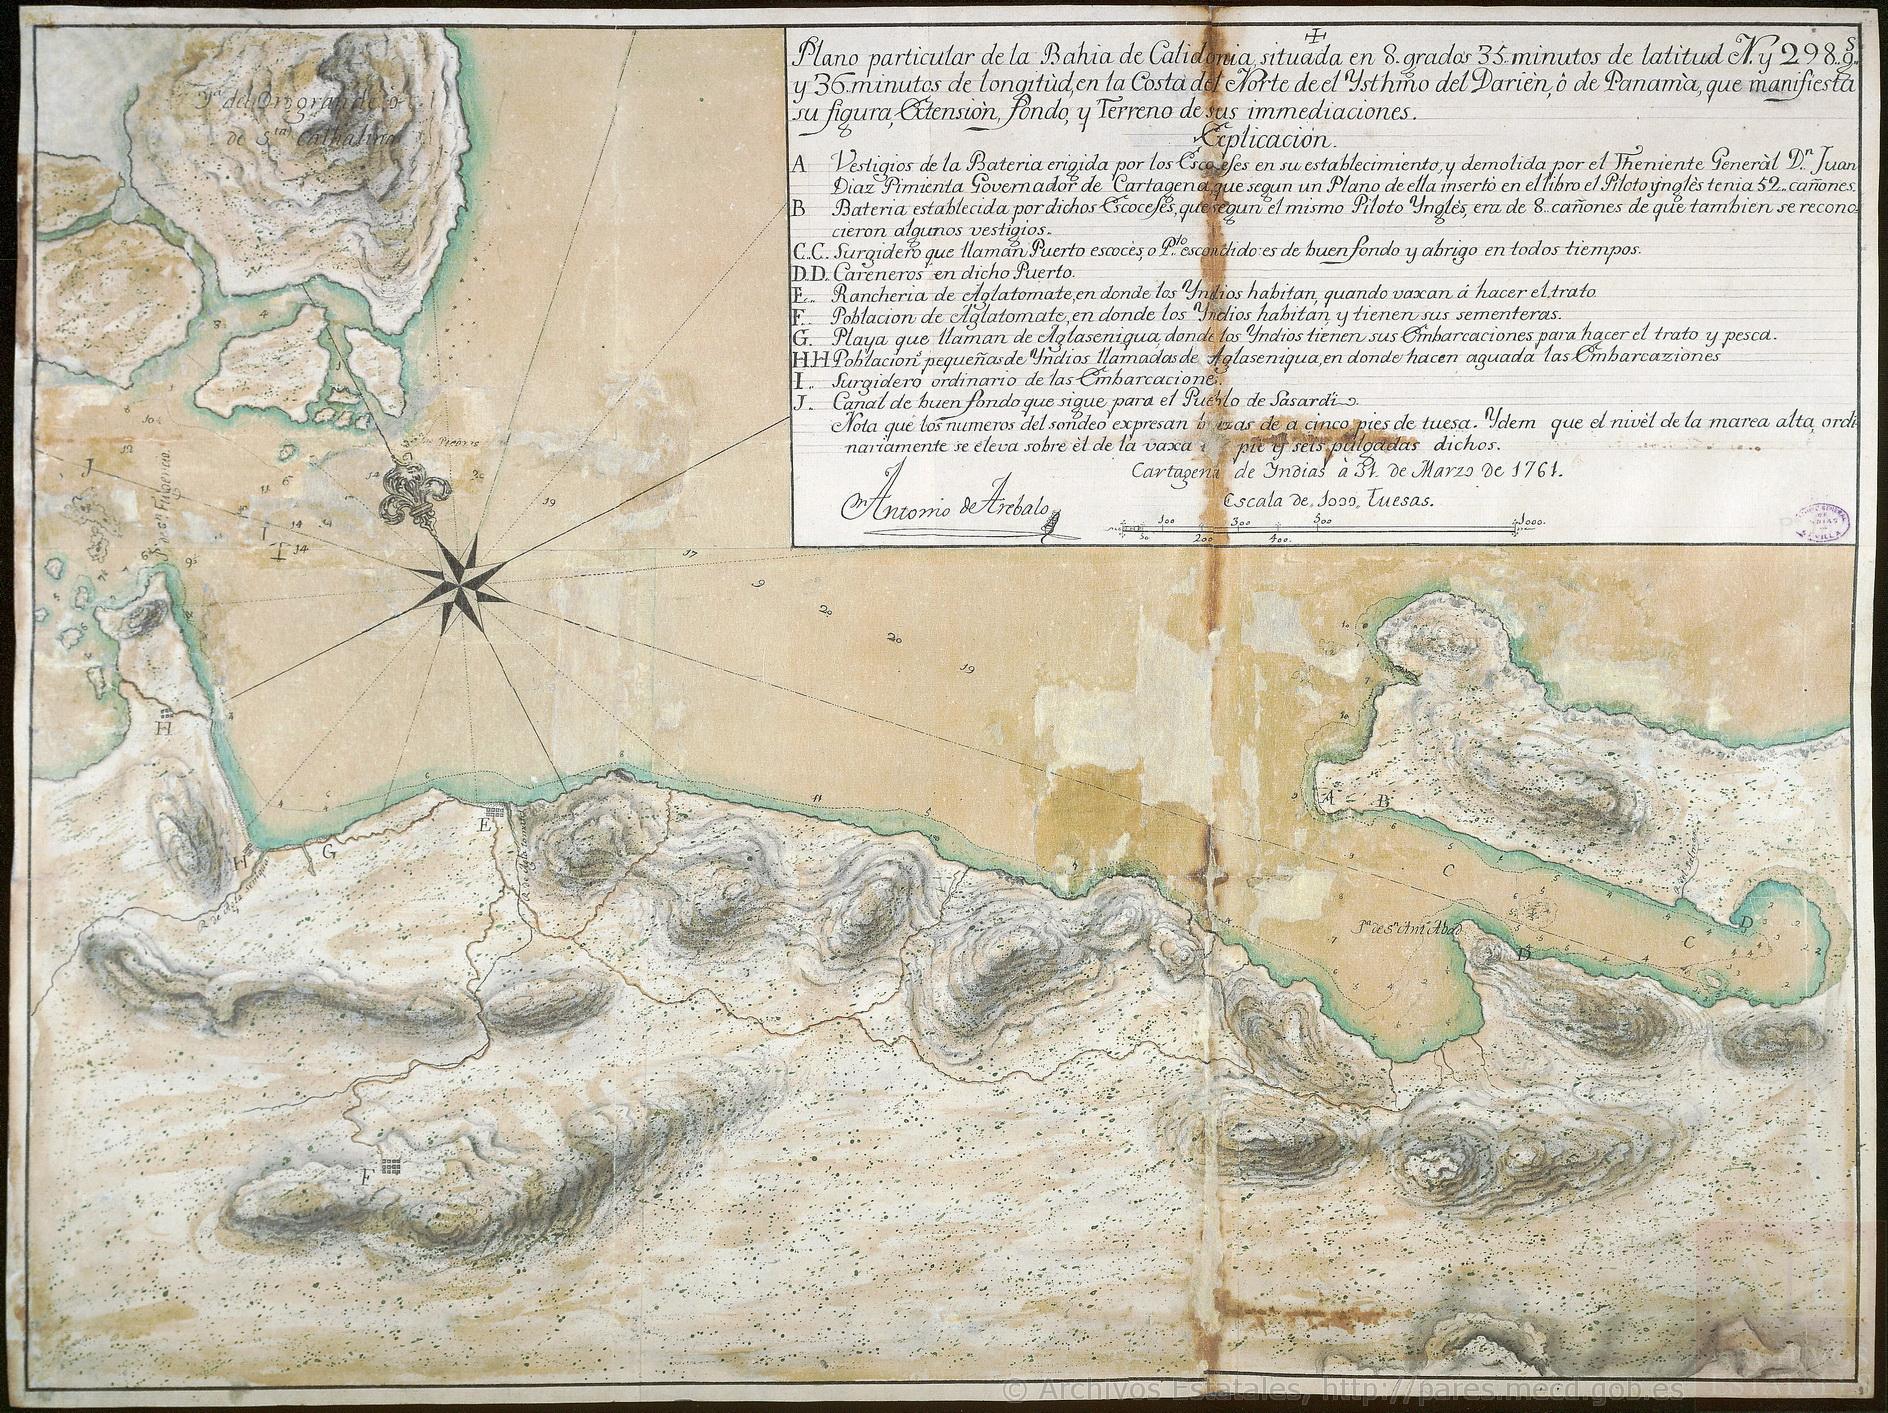 Plano particular de la Bahia de Calidonia, situada en 8. grados 35. minutos de latitud N. y 298. g.s
y 36 minutos de longitùd, en la Costa del Norte de el Ysthmo del Darièn, ò de Panamà, que manifiesta
su figura, Extensiòn, fondo, y Terreno de sus immediaciones.
Explicaciòn.
A Vestigios de la Bateria erigida por los Escoceses en su establecimiento, y demolida por el Theniente Generàl D.n Juan
Diaz Pimienta Governador de Cartagena, que segun un Plano de ella insertò en el libro el Piloto ynglès tenia 52.. cañones.
B Bateria establecida por dichos Escoceses, que segun el mismo Piloto Ynglès, era de 8.. cañones de que tambien se recono-
cieron algunos vestigios.
C..C. Surgidero que llaman Puerto escocès, o P.to escondido: es de buen fondo y abrigo en todos tiempos.
D.D. Careneros en dicho Puerto.
E.. Rancheria de Aglatomate, en donde los Yndios habitan, quando vaxan á hacer el trato
F.. Poblacion de Aglatomate, en donde los Yndios habitan, y tienen sus sementeras.
G.. Playa que llaman de Aglasenigua, donde los Yndios tienen sus Embarcaciones para hacer el trato y pesca.
H.H Poblacion.s pequeñas de Yndios llamadas de Aglasenigua, en donde hacen aguada las Embarcaziones
I.. Surgidero ordinario de las Embarcaciones.
J.. Canal de buen fondo que sigue para el Pueblo de Sasardi
Nota que los numeros del sondeo expresan de a cinco pies de tuesa. Ydem que el nivèl de la marea alta, ordi-
nariamente se eleva sobre èl de la vaxa pie y seis pulgadas dichos.
Cartagena de Yndias à 31. de Marzo de 1761.
Antonio de Arebalo
Escala de 1000. Tuesas.
100. 300. 500. 1000.
50 200 400.
Y.a del Oro grande ò
de S.ta Cathalina
J
I
14
17
9
20
20
19
19
H
H
G
E
F
A
B
C
C
D
D
P.ta de S.n Ant. Abad
© Archivos Estatales, http://pares.mecd.gob.es